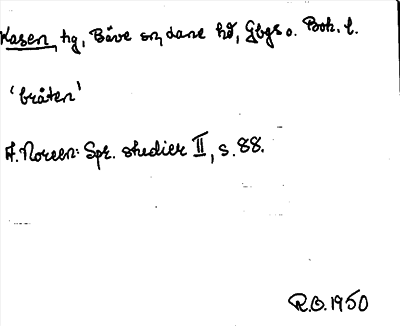 Kasen, hg, Bäve sn, Lane hd, Gbgs o. Boh. l.
'bråten'
A. Noreen: Spr. studier II, s. 88.
R.O. 1950